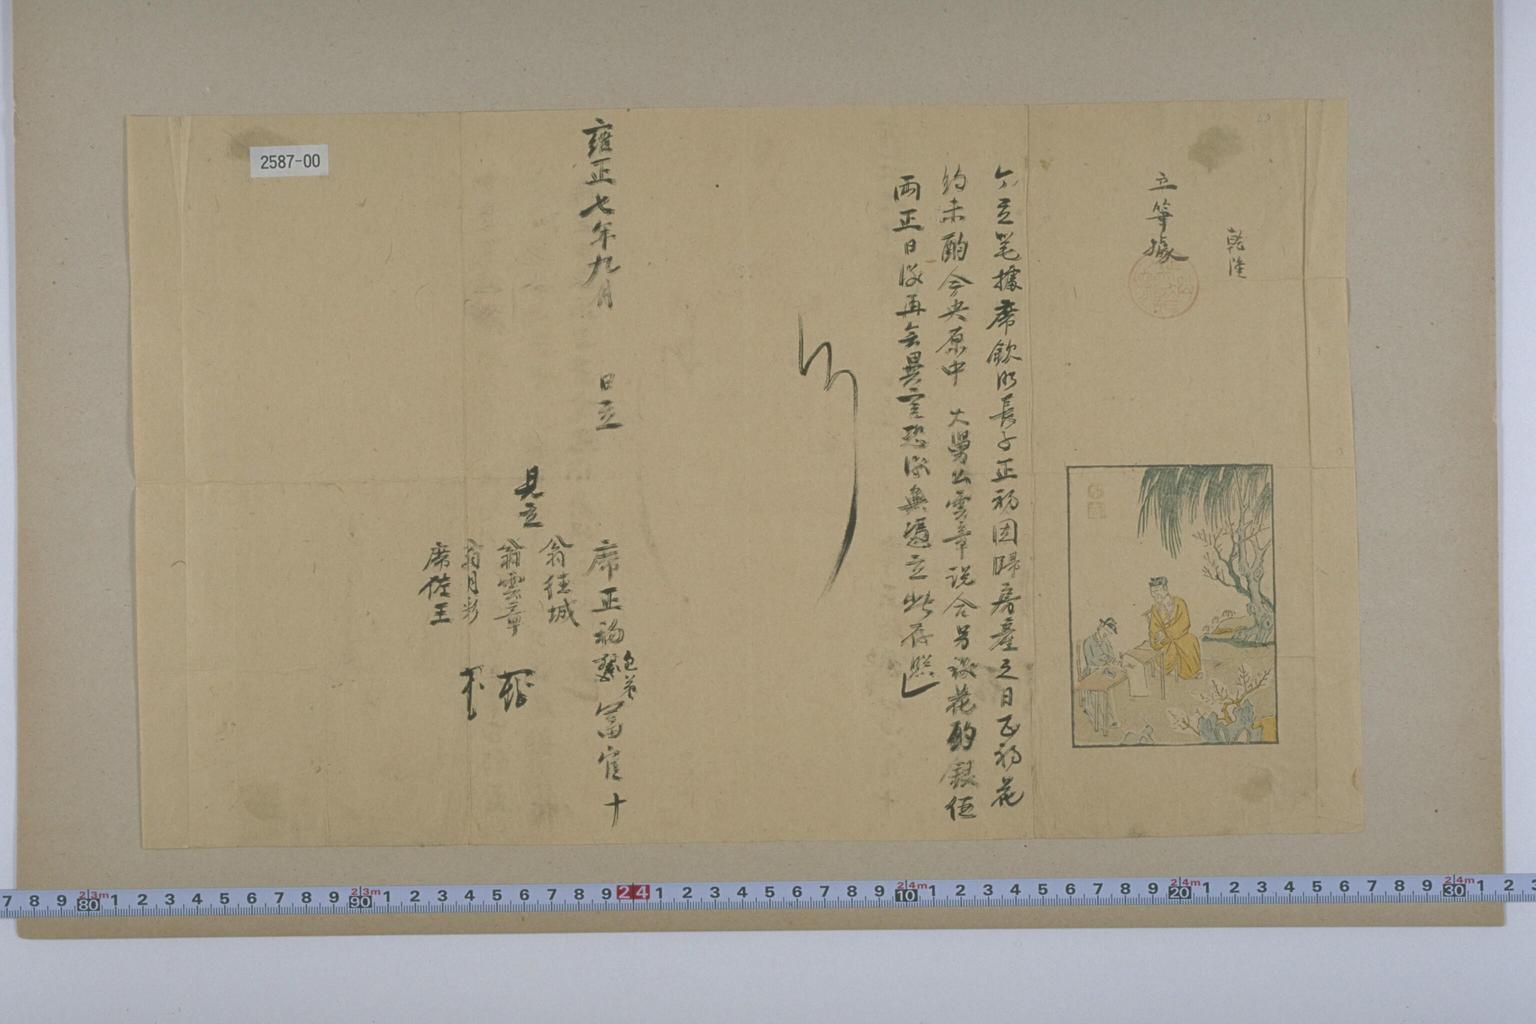 乾隆
立筆據
立筆據席欽明長子正初因歸房產之日正初花
約未酌今央原中 大舅公雲章説合另議花酌銀伍
兩正日後再無異言恐後無憑立此存照
雍正七年九月 日立
席正初 十
見立
翁德城
翁雲章
翁月彩
席佐王
2587-00